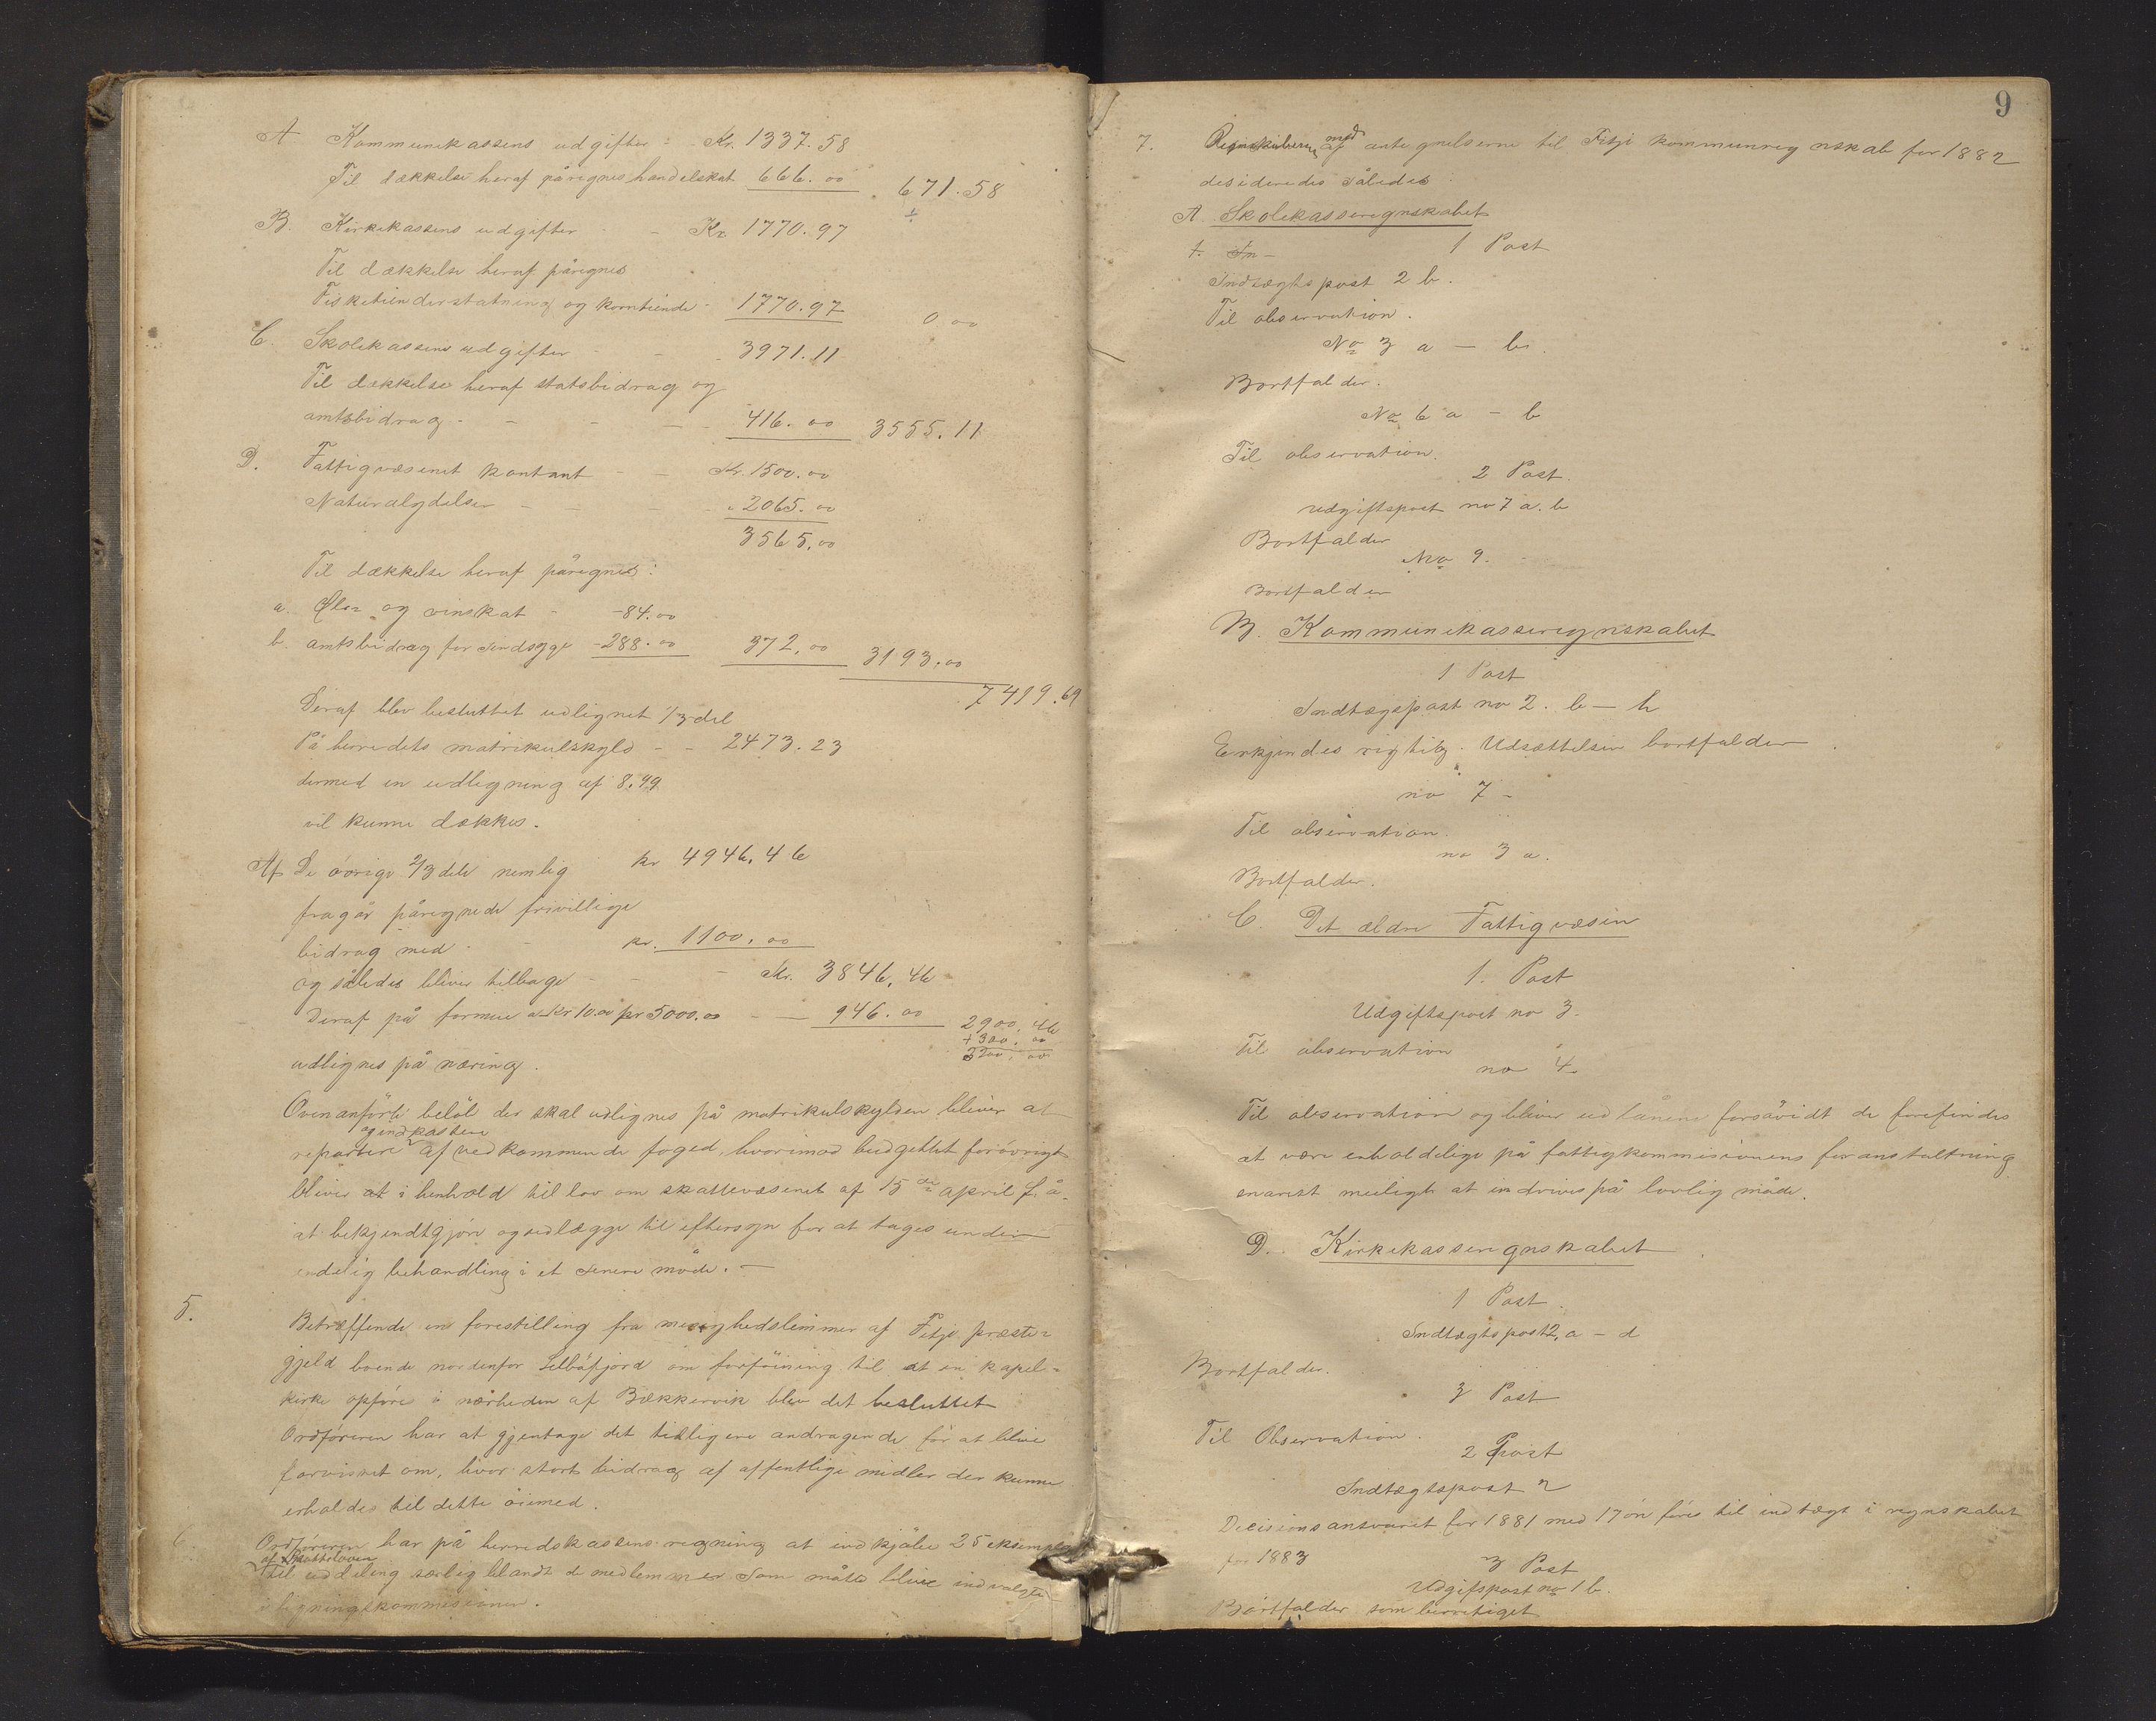 A Kommunekassens udgifter - - Kr. 1337.58
Til dækkelse heraf påregnes handelskat 666.00 671.58
B. Kirkekassens udgifter - - Kr 1770.97
Til dækkelse heraf påregnes
Fisketiendeerstatning og korntiende - 1770.97 0 00
C. Skolekassens udgifter - - - 3971.11
Til dækkelse heraf statsbidrag og
amtsbidrag - - - - 416.00 3555.11
D. Fattigvæsenet kontant - - Kr. 1500.00
Naturalydelser - - - - „ 2065.00
3565,00
Til dækkelse heraf påregnes:
a. Øl- og vinskat - - 84.00
b. amtsbidrag for sindsyge - 288.00 372,00 3193.00
7419.69
Deraf blev besluttet udlignet 1/3 del
På herredets matrikulskyld - - 2473.23
dermed en udlegning af 8.49
vil kunne dækkes.
Af De øvrige 2/3 dele nemlig kr 4946,46
fragår påregnede frivillige
bidrag med - - kr. 1100.00
og således bliver tilbage - - - Kr. 3846,46
Deraf på formue a Kr 10.00 pr 5000.00 - - 946.00 2900,46
+ 300.00
3200,00
udlignes på næring.
Ovenanførte beløb der skal udlignes på matrikulskylden bliver at
og indkassere
repartere af vedkommende foged, hvorimod budgettet forøvrigt
bliver at i henhold til lov om skattevæsenet af 15de april f. å.
at bekjendtgjøre og udlægge til eftersyn for at tages under
endelig behandling i et senere møde. -
5. Betræffende en forestilling fra menighedslemmer af Fitje præste-
gjeld boende nordenfor Selbøfjord om forføining til at en kapel-
kirke opføre i nærheden af Bækkervik blev det besluttet
Ordføreren har at gjentage det tidligere andragende for at blive
forvisset om, hvor stort bidrag af offentlige midler der kunne
erholdes til dette øiemed.
6. Ordføreren har på herredskassens regning at indkjøbe 25 eksempl
af Skatteloven
til uddeling særlig blandt de medlemmer som måtte blive indvalgte
i ligningskommisionen.
9
7. med
af antegnelserne til Fitje kommuneregnskab for 1882
desideredes således
A Skolekasseregnskabet
1 Post
Indtægtspost 2 b.
Til observation.
No 3 a - b.
Bortfalder.
No 6 a - b
Til observation.
2 Post.
Udgiftspost no 7 a. b
Bortfalder
No 9.
Bortfalder
B. Kommunekasseregnskabet
1 Post
Indtægspost no 2. b - h
Erkjendes rigtig. Udsættelsen bortfalder.
no 7 -
Til observation.
no 3 a.
Bortfalder.
C. Det ældre Fattigvæsen
1. Post
Udgiftspost no 3.
Til observation
no 4
Til observation og bliver udlånene forsåvidt de forefindes
at være enholdelige på fattigkommisionens foranstaltning
snarest muligt at inddrives på lovlig måde.
D. Kirkekasseregnskabet
1 Post.
Indtægtspost 2, a - d
Bortfalder.
3 Post
Til Observation.
2 Post
Indtægtspost 2
Decisionsansvaret for 1881 med 17 øre føres til indtægt i regnskabet
for 1883
3 Post
Udgifspost no 1 b.
Bortfalder som berretiget